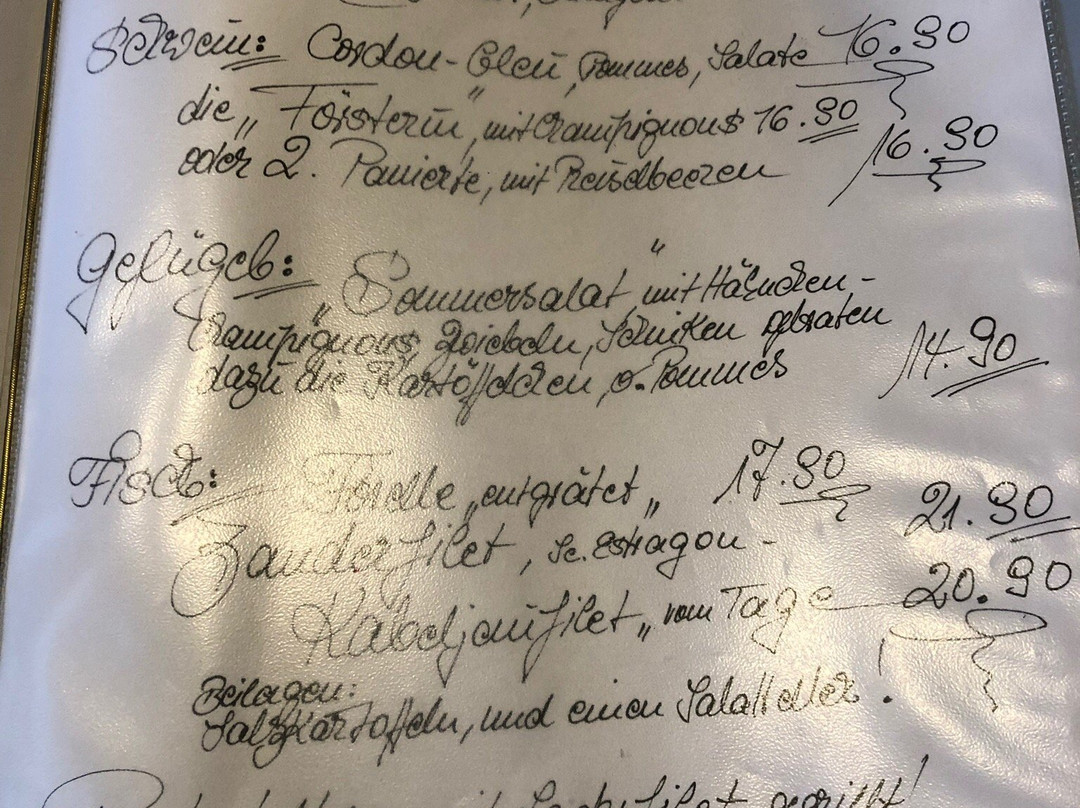 Schwein: Cordon-Bleu, Pommes, Salate 16.90
die "Försterin" mit Champignons 16.90
oder 2. Panierte, mit Preiselbeeren 16.90
Geflügel: "Sommersalat" mit Hähnchen-
Champignons, Zwiebeln, Schinken gebraten
dazu die Kartöffelchen, o. Pommes 14.90
Fisch: Forelle "entgrätet" 17.90
Zanderfilet, Sc. Estragon - 21.90
Kabeljaufilet "vom Tage 20.90
Beilagen:
Salzkartoffeln, und einen Salatteller!
mit Lachsfilet gegrillt!